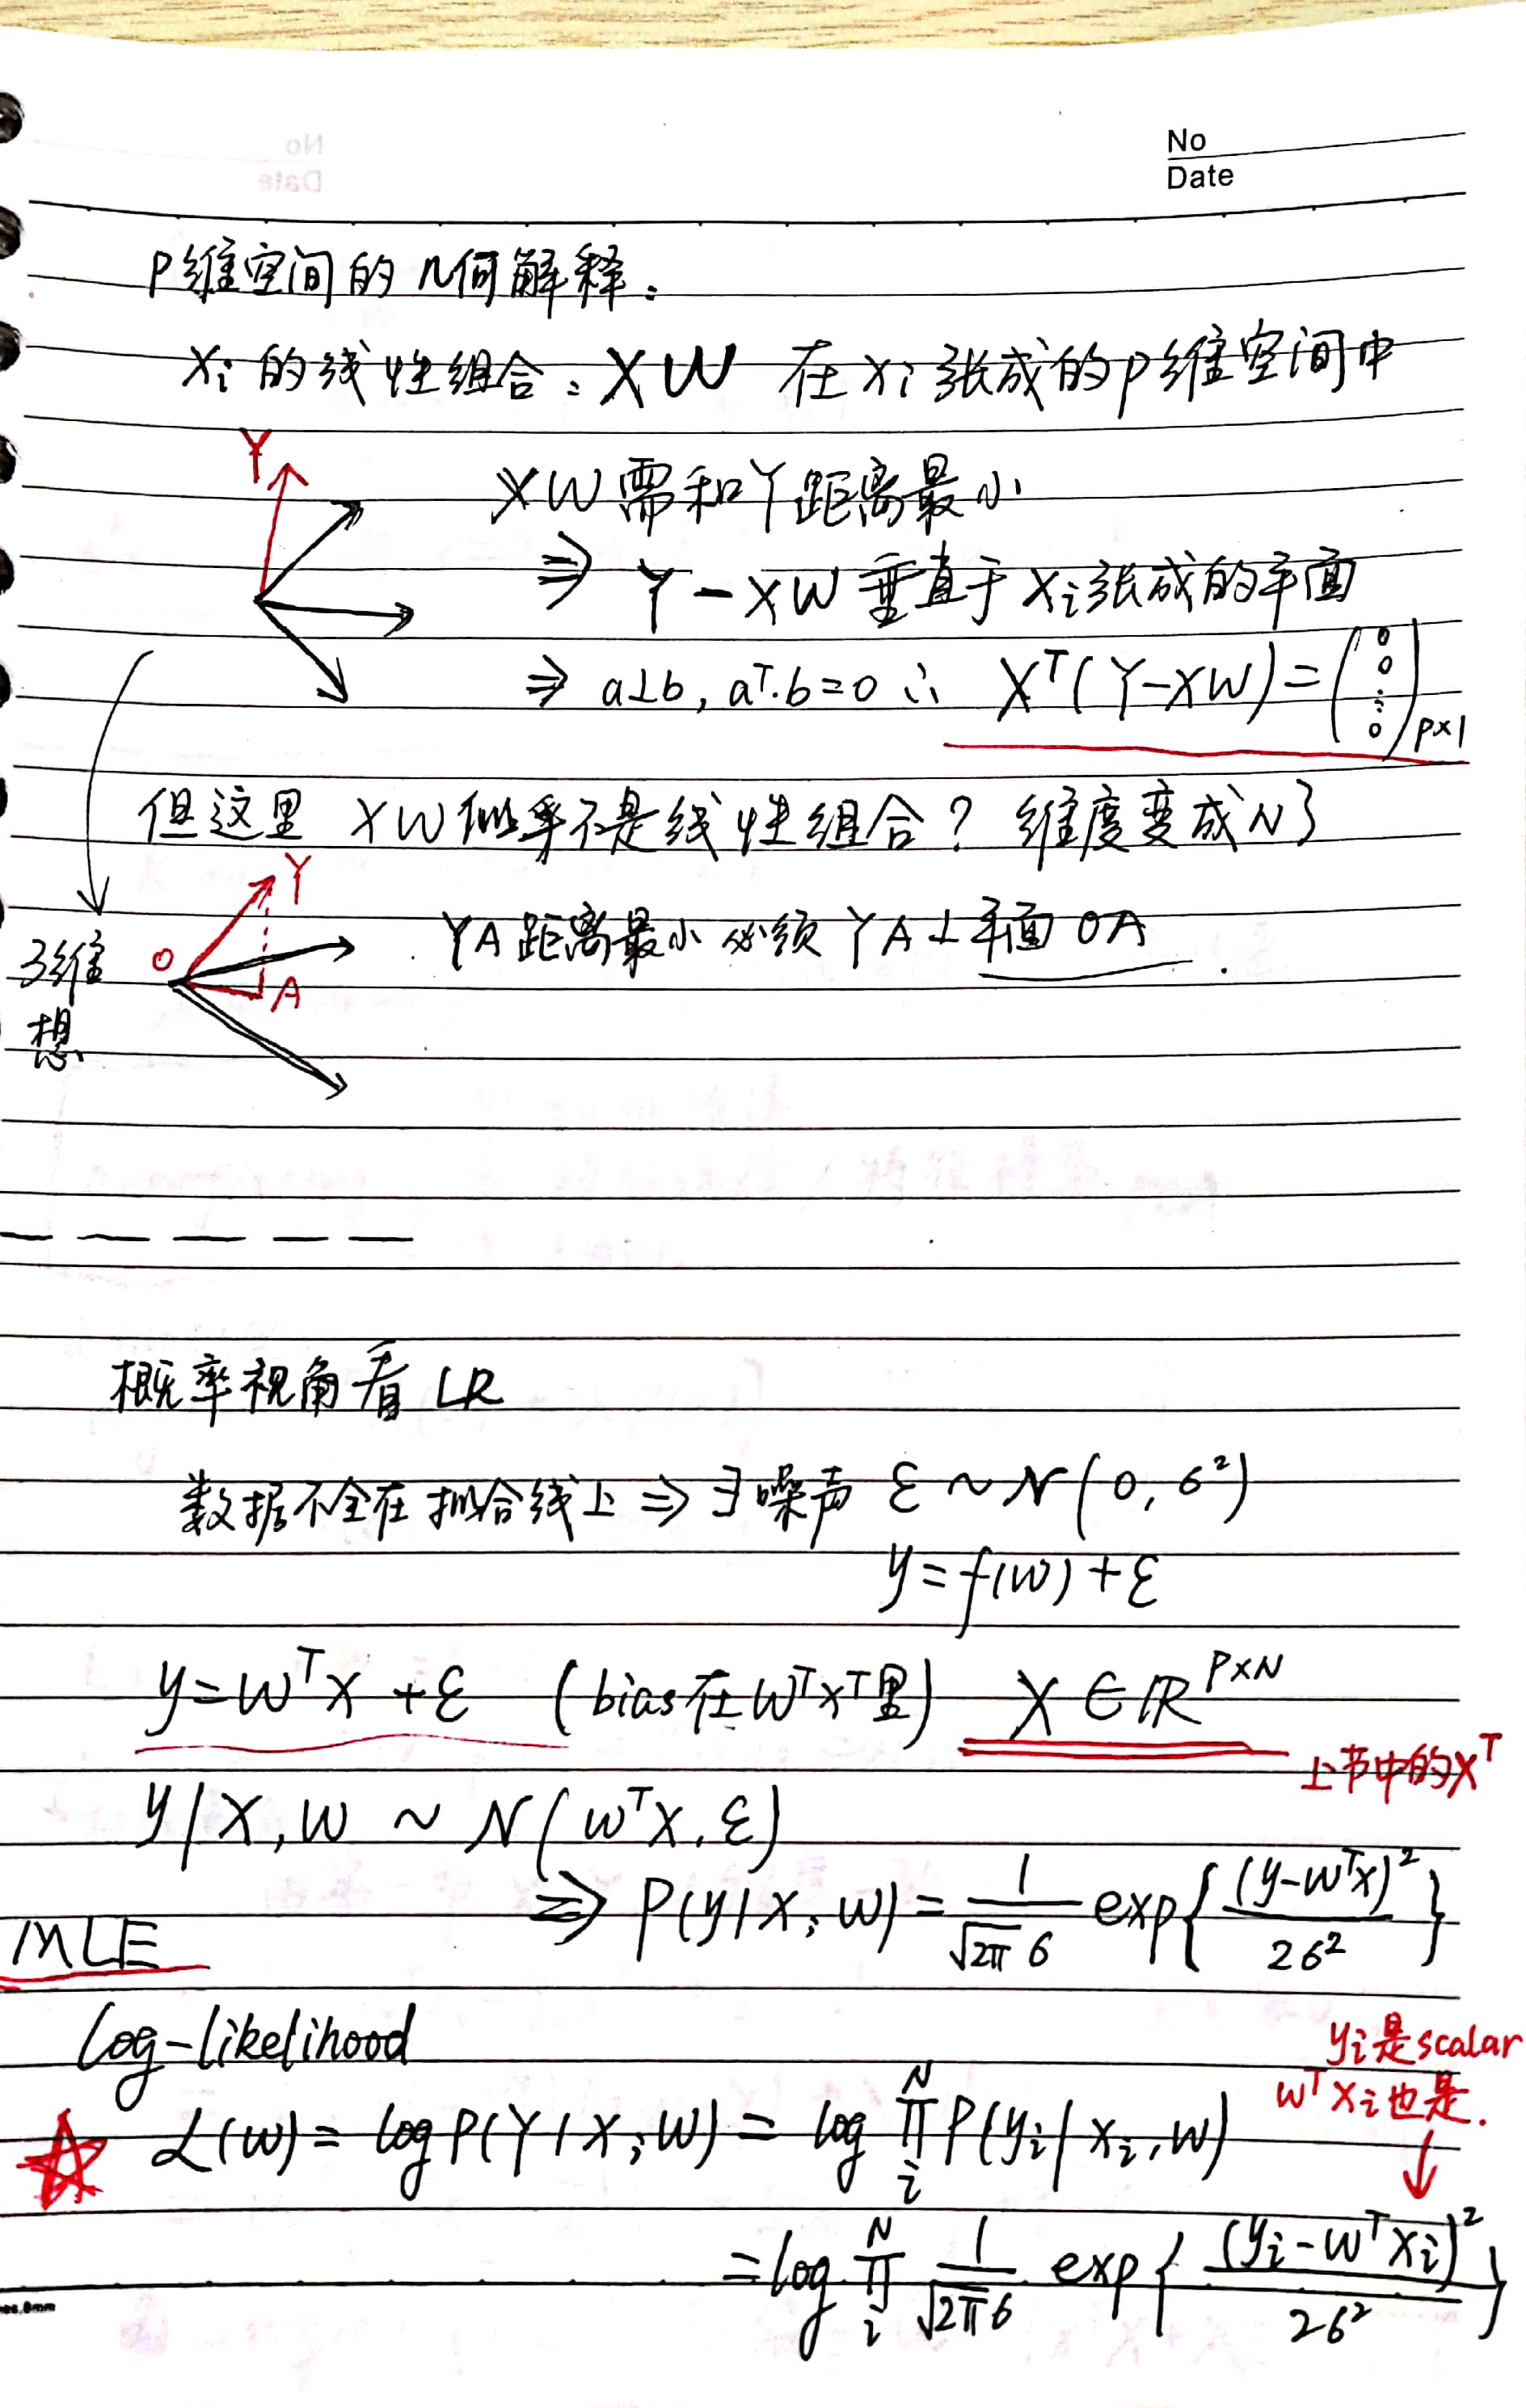 No
Date
P维空间的几何解释:
Xi的线性组合: XW 在xi张成的p维空间中
Y
XW需和Y距离最小
⇒ Y-XW垂直于Xi张成的平面
⇒ a⊥b, aᵀ·b=0 ∴ Xᵀ(Y-XW)=(0 0 ⋮ 0)p×1
但这里 XW似乎不是线性组合? 维度变成N了
Y
YA距离最小必须YA⊥平面OA.
3维
O
A
想
概率视角看LR
数据不全在拟合线上 ⇒ ∃噪声 ε ~ N(0, 6²)
y=f(w)+ε
y=wᵀX+ε (bias在wᵀxᵀ里) X∈ℝ^{P×N}
上节中的Xᵀ
y|X,W ~ N(wᵀX, ε)
⇒ P(y|X;W)= 1/(√2π 6) exp{ (y-wᵀx)²/26² }
MLE
Log-likelihood
yi是scalar
wᵀxi也是.
L(w)= log P(Y|X;W)= log ∏_i^N P(yi|xi,w)
=log ∏_i^N 1/(√2π6) exp{ (yi-wᵀxi)²/26² }